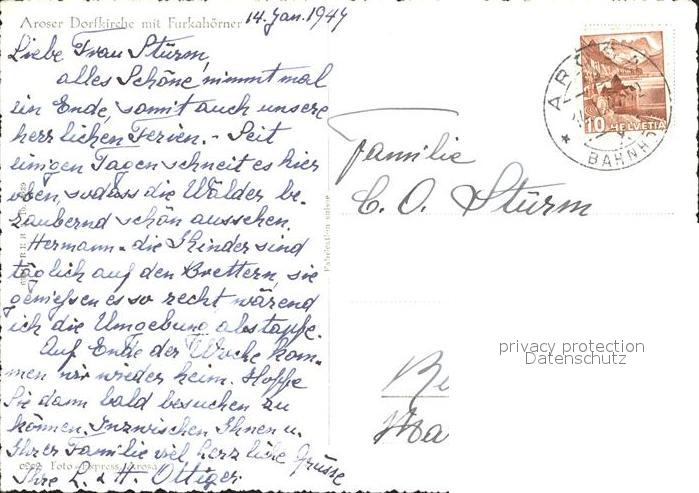 Aroser Dorfkirche mit Furkahörner
14. Jan. 1947
Liebe Frau Stürm,
alles Schöne nimmt mal
ein Ende, somit auch unsere
herrlichen Ferien. - Seit
einigen Tagen schneit es hier
oben, sodass die Wälder be-
zaubernd schön aussehen.
Hermann u. die Kinder sind
täglich auf den Brettern, sie
geniessen es so recht, wärend
ich die Umgebung abstapfe.
Auf Ende der Woche kom-
men wir wieder heim. Hoffe
Sie dann bald besuchen zu
können. Inzwischen Ihnen u.
Ihrer Familie viel herzliche Grüsse
Ihre L. & H. Ottiger.
Foto-Express, Arosa
Fabrication suisse
Familie
C. O. Stürm
Be
AROSA
BAHNHO
10 HELVETIA
privacy protection
Datenschutz